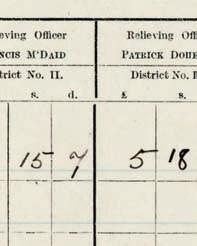 eving Officer Relieving Offi
NCIS M'DAID PATRICK DOHE
trict No. II. District No. I
s. d. £ s.
15 7 5 18